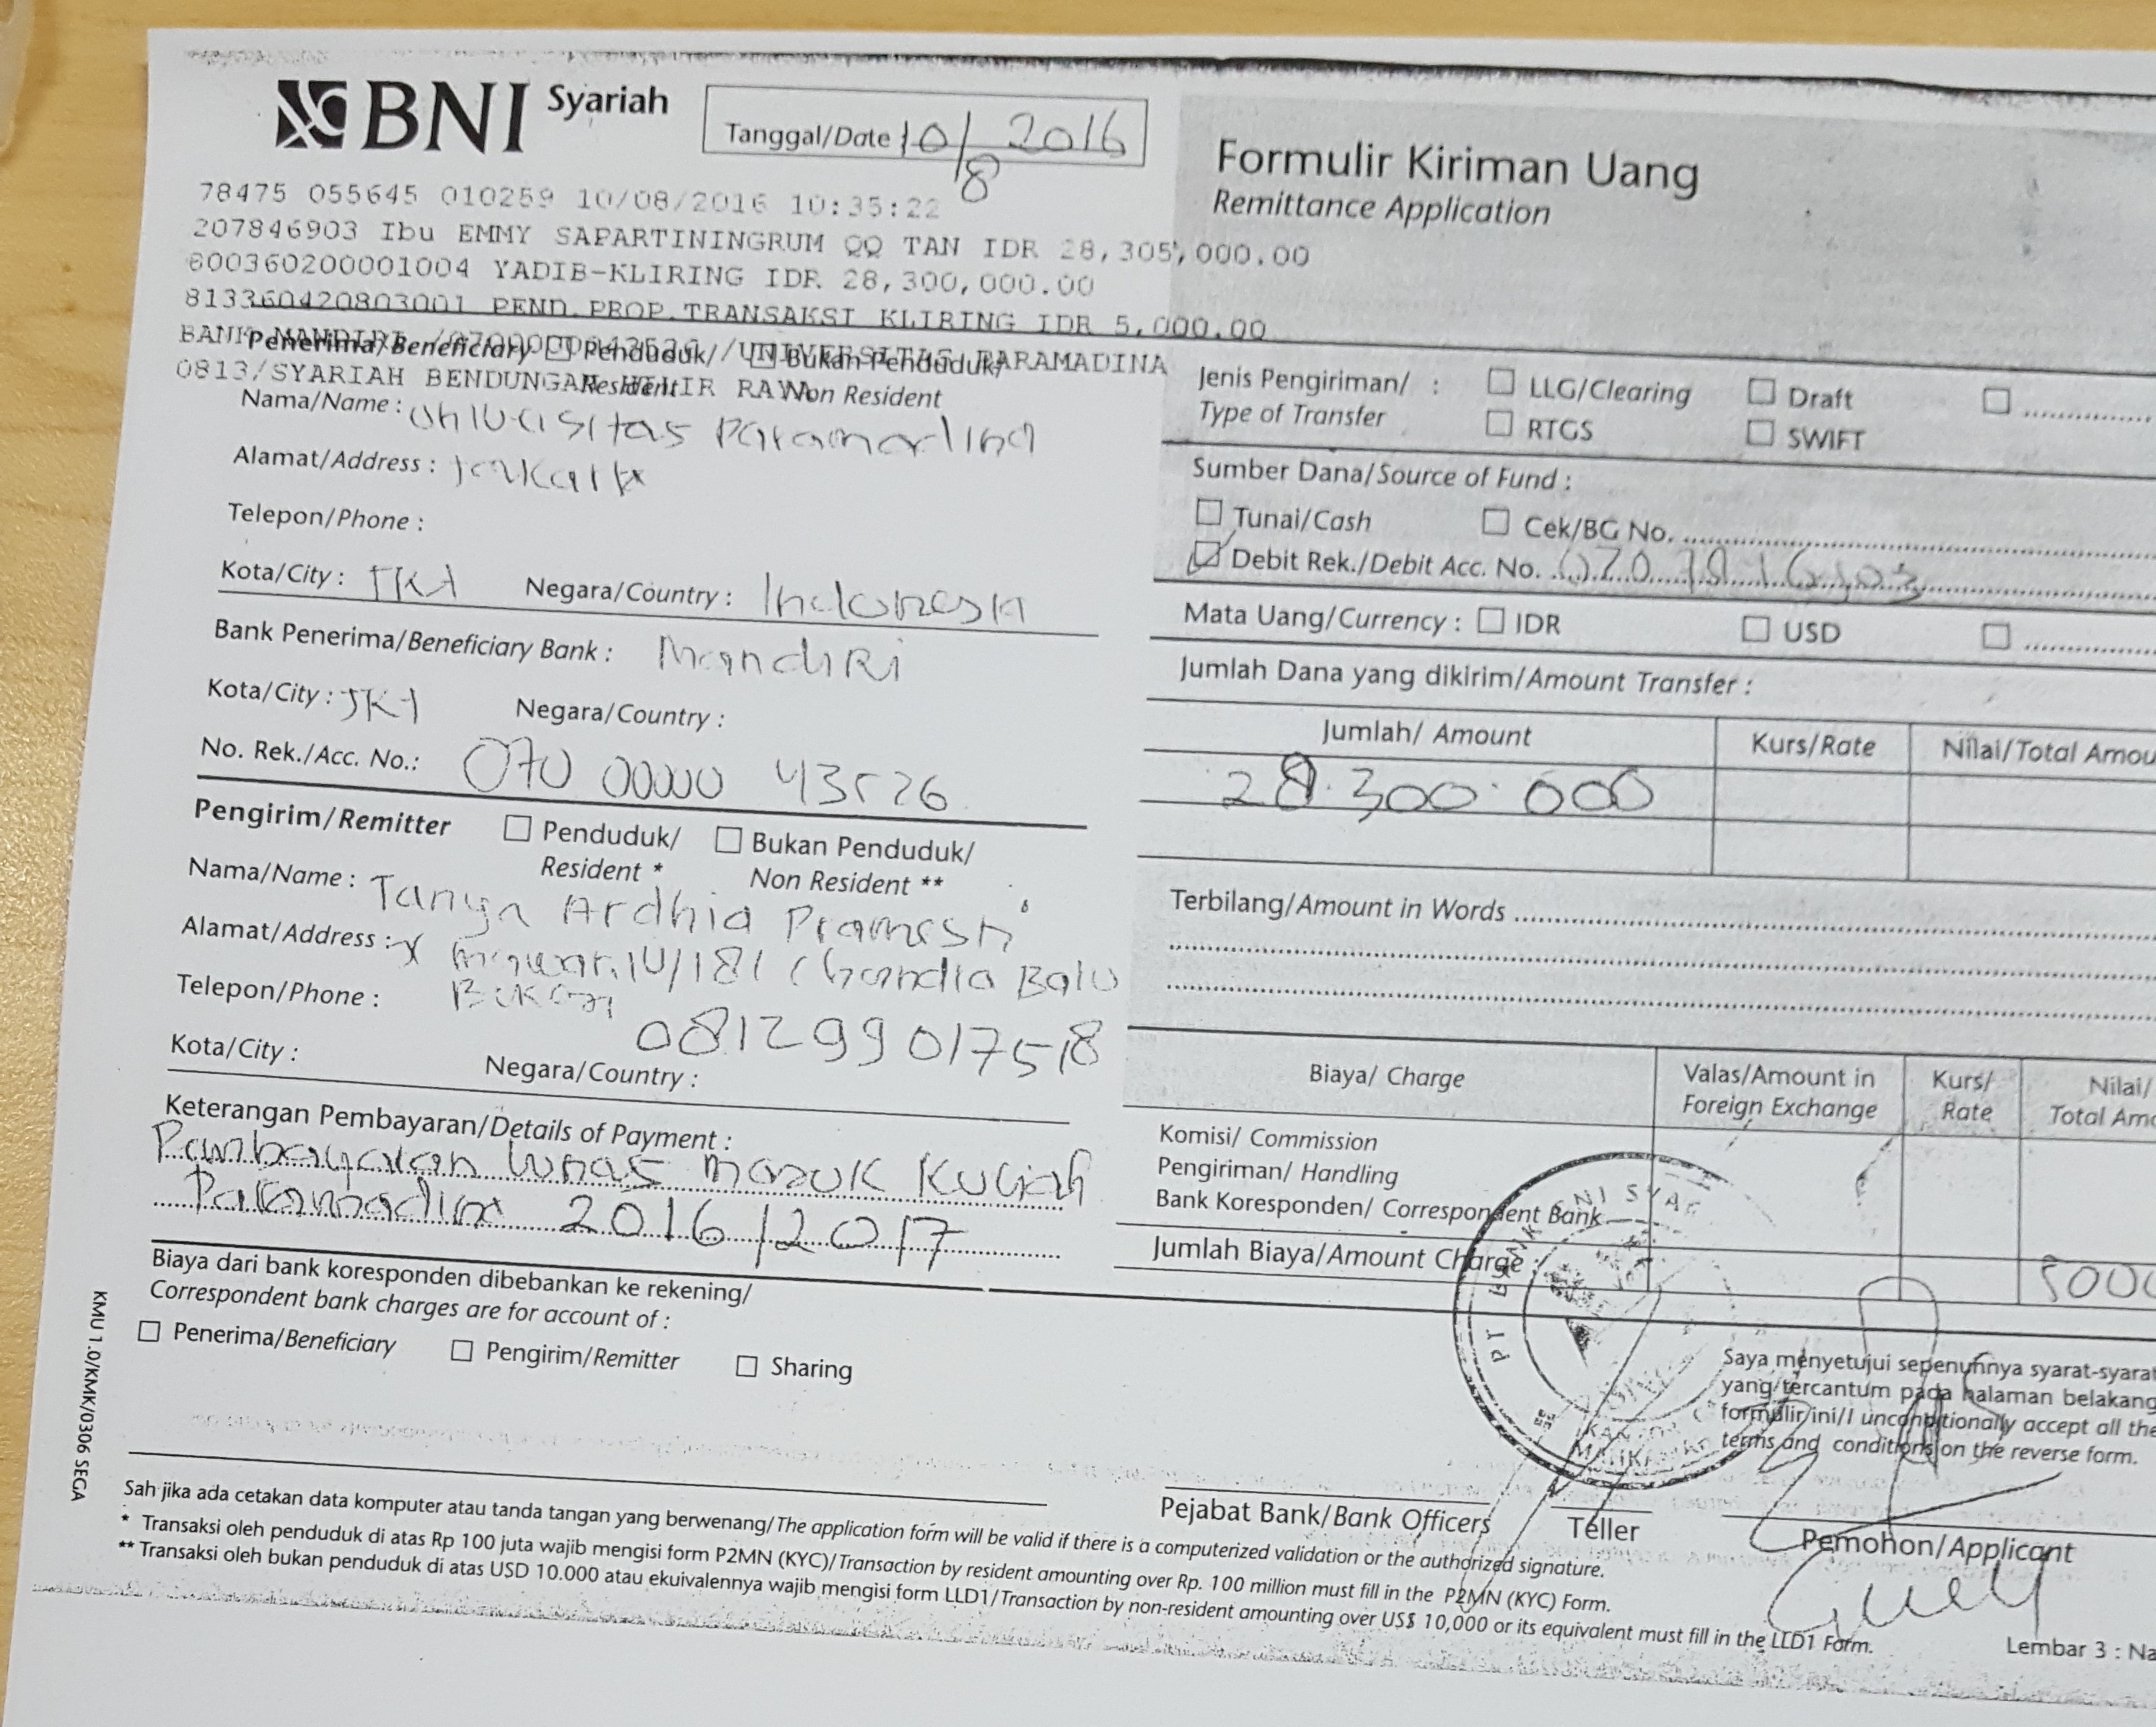 BNI Syariah
Tanggal/Date 10/8 2016
78475 055645 010259 10/08/2016 10:35:22
207846903 Ibu EMMY SAPARTININGRUM QQ TAN IDR 28,305,000.00
600360200001004 YADIB-KLIRING IDR 28,300,000.00
813360420803001 PEND.PROP.TRANSAKSI KLIRING IDR 5,000.00
BANK MANDIRI /UNIVERSITAS PARAMADINA
0813/SYARIAH BENDUNGAN HILIR RAYA
Penerima/Beneficiary Penduduk/ Bukan Penduduk/
Resident Non Resident
Nama/Name : Univeasitas Paramadina
Alamat/Address : Jakarta
Telepon/Phone :
Kota/City : JKT Negara/Country : Indonesia
Bank Penerima/Beneficiary Bank : MandiRi
Kota/City : JKT Negara/Country :
No. Rek./Acc. No.: 070 00000 43526
Pengirim/Remitter Penduduk/ Bukan Penduduk/
Resident * Non Resident **
Nama/Name : Tanya Ardhia Pramesti
Alamat/Address : IU/181 Chandra Baru
Telepon/Phone : Bekasi
081299017518
Kota/City : Negara/Country :
Keterangan Pembayaran/Details of Payment :
Pembayaran lunas masuk Kuliah
Paramadina 2016/2017
Biaya dari bank koresponden dibebankan ke rekening/
Correspondent bank charges are for account of :
Penerima/Beneficiary Pengirim/Remitter Sharing
KMU 1.0/KMK/0306 SEGA
Formulir Kiriman Uang
Remittance Application
Jenis Pengiriman/ : LLG/Clearing Draft
Type of Transfer RTGS SWIFT
Sumber Dana/Source of Fund :
Tunai/Cash Cek/BG No.
Debit Rek./Debit Acc. No.
Mata Uang/Currency : IDR USD
Jumlah Dana yang dikirim/Amount Transfer :
Jumlah/ Amount Kurs/Rate Nilai/Total Amou
28.300.000
Terbilang/Amount in Words
Biaya/ Charge Valas/Amount in Kurs/ Nilai/
Foreign Exchange Rate Total Amo
Komisi/ Commission
Pengiriman/ Handling
Bank Koresponden/ Correspondent Bank
Jumlah Biaya/Amount Charge : 5000
PT BANK BNI SYAR
Saya menyetujui sepenuhnya syarat-syarat
yang tercantum pada halaman belakang
formulir ini/I unconditionally accept all the
terms and conditions on the reverse form.
Pejabat Bank/Bank Officers Teller Pemohon/Applicant
Sah jika ada cetakan data komputer atau tanda tangan yang berwenang/The application form will be valid if there is a computerized validation or the authorized signature.
* Transaksi oleh penduduk di atas Rp 100 juta wajib mengisi form P2MN (KYC)/Transaction by resident amounting over Rp. 100 million must fill in the P2MN (KYC) Form.
** Transaksi oleh bukan penduduk di atas USD 10.000 atau ekuivalennya wajib mengisi form LLD1/Transaction by non-resident amounting over US$ 10,000 or its equivalent must fill in the LLD1 Form.
Lembar 3 : Na